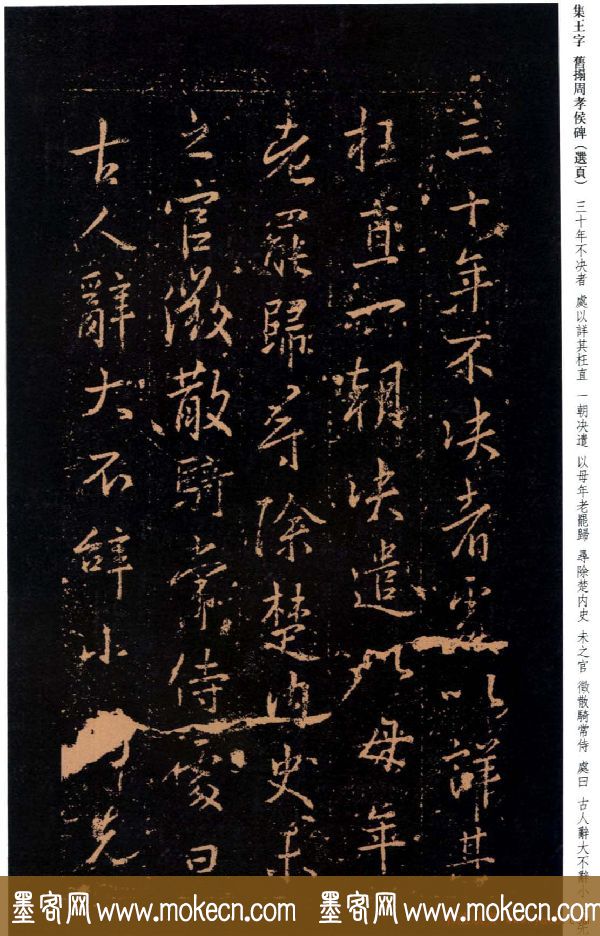 集王字 舊搨周孝侯碑(選頁) 三十年不決者 處以詳其枉直 一朝決遣 以母年老罷歸 尋除楚內史 未之官 徵散騎常侍 處曰 古人辭大不辭小 先
三十年不決者處以詳其
枉直一朝決遣以母年
老罷歸尋除楚內史未
之官徵散騎常侍處曰
古人辭大不辭小 先
墨客网 www.mokecn.com 墨客网 www.mokecn.com